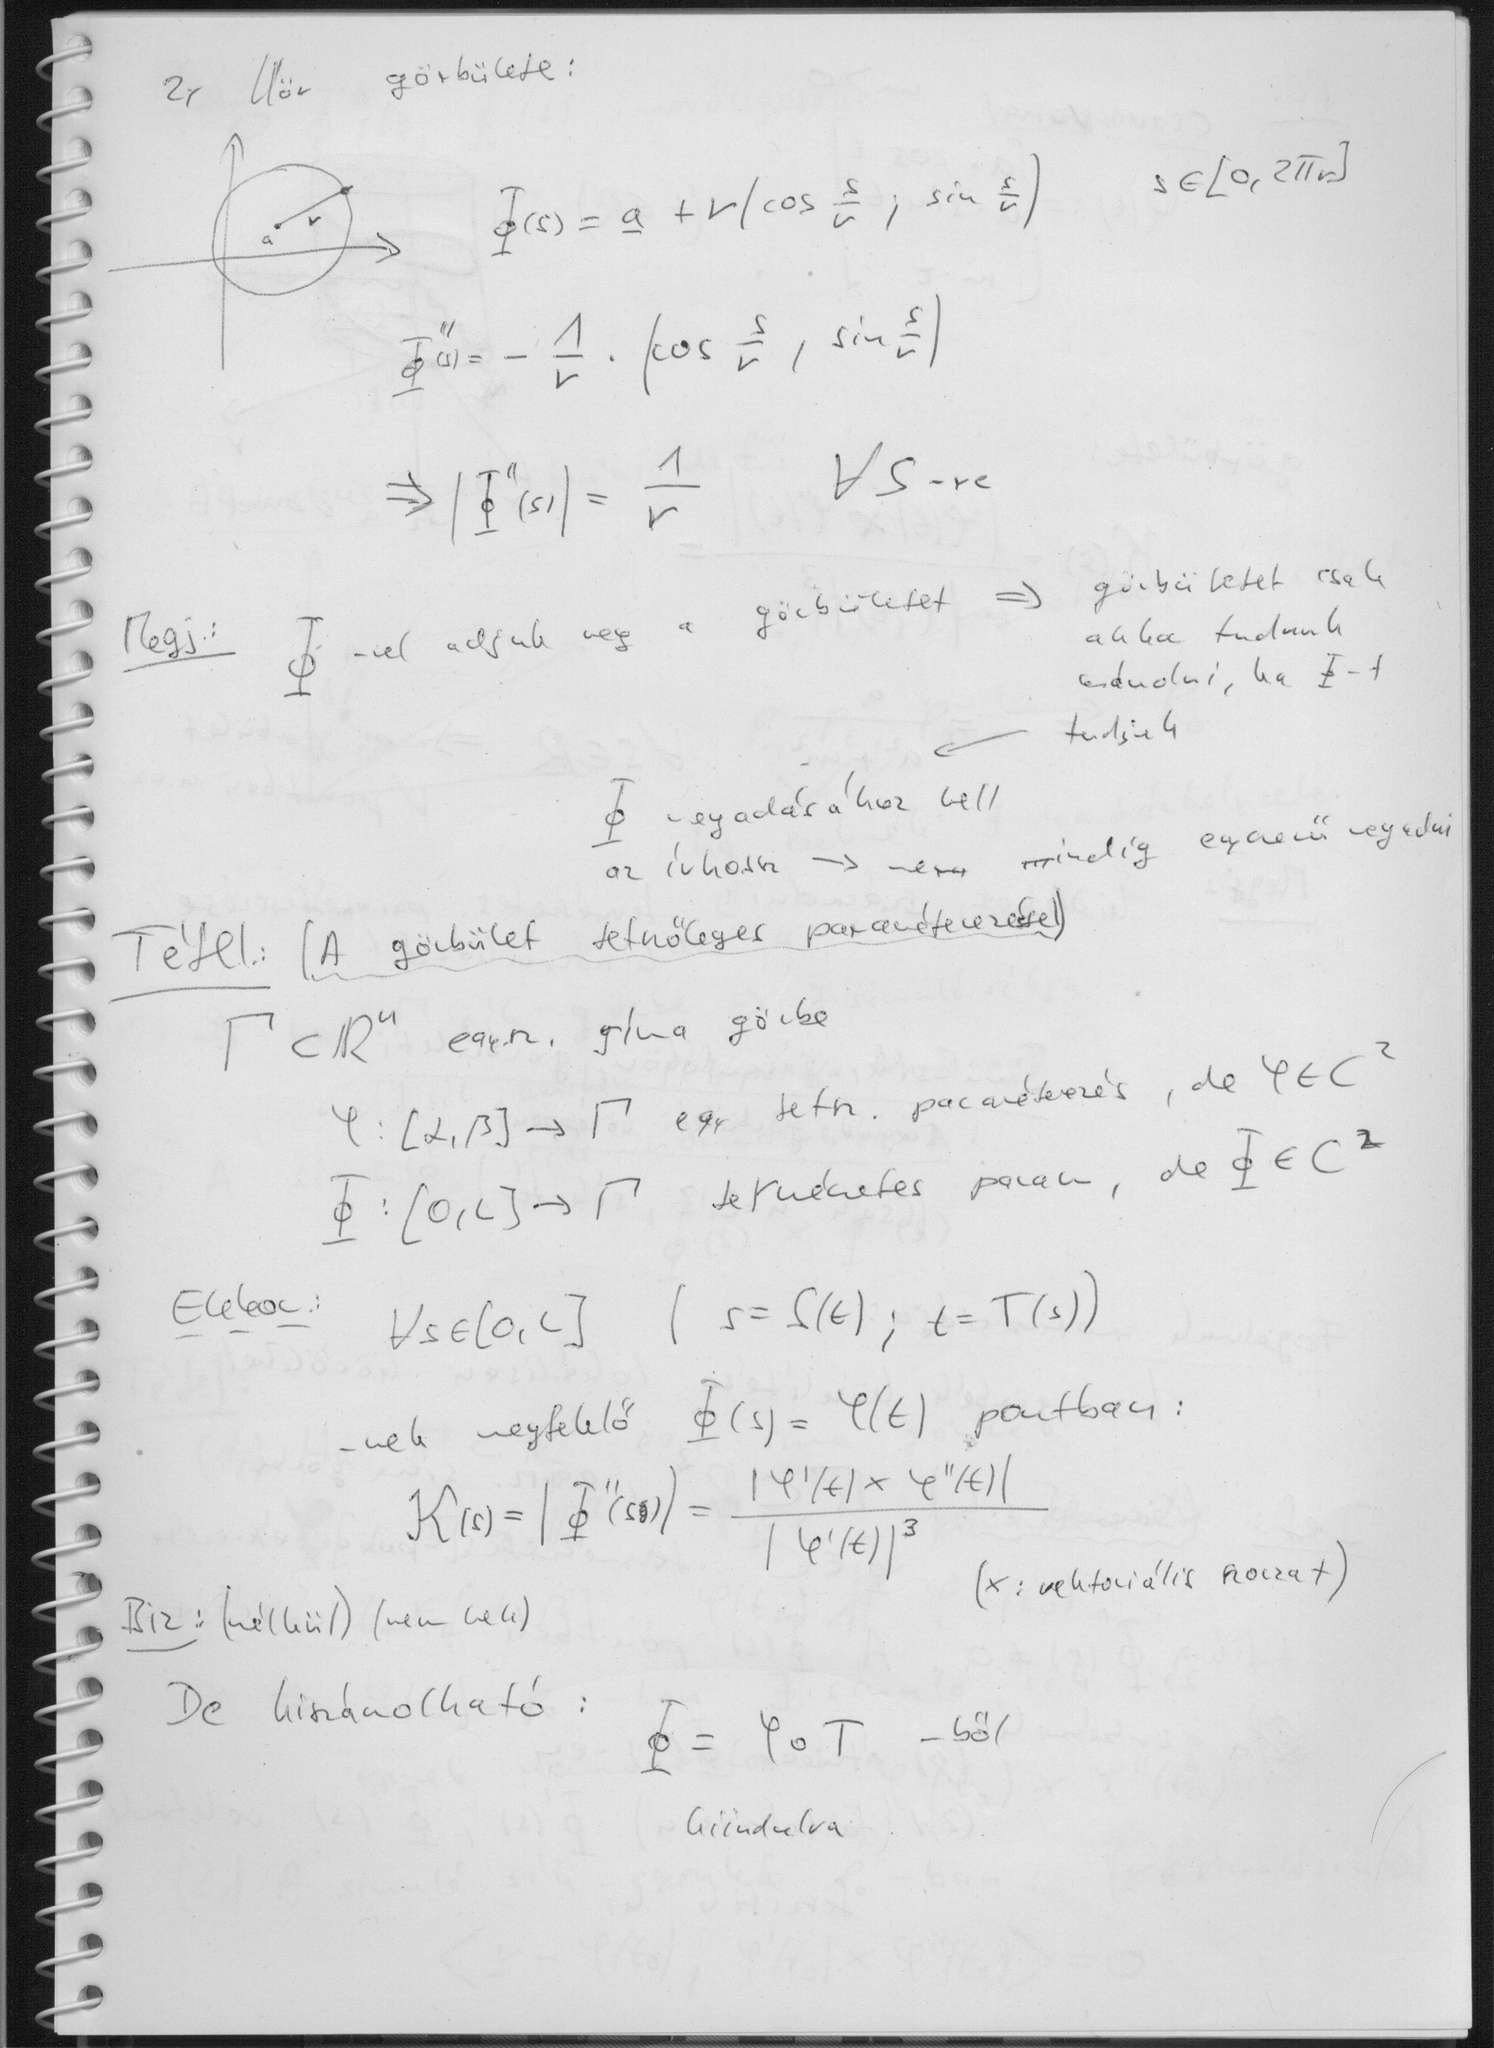 2, Kör görbülete:
a r
Φ(s) = a + r(cos s/r ; sin s/r) s∈[0, 2πr]
Φ''(s) = - 1/r · (cos s/r , sin s/r)
⇒ |Φ''(s)| = 1/r ∀s-re
Megj.: Φ-vel adjuk meg a görbületet ⇒ görbületet csak
akkor tudunk
számolni, ha Φ-t
tudjuk
Φ megadásához kell
az ívhossz → nem mindig egyszerű megadni
Tétel: (A görbület tetszőleges paraméterezéssel)
Γ⊂R^n egysz. sima görbe
φ: [α,β] → Γ egy tetsz. paraméterezés, de φ∈C²
Φ: [0,L] → Γ természetes param, de Φ∈C²
Ekkor: ∀s∈[0,L] (s=S(t); t=T(s))
-nek megfelelő Φ(s) = φ(t) pontban:
K(s) = |Φ''(s)| = |φ'(t) × φ''(t)| / |φ'(t)|³
(×: vektoriális szorzat)
Biz: (nélkül) (nem kell)
De kiszámolható: Φ = φ∘T -ből
kiindulva